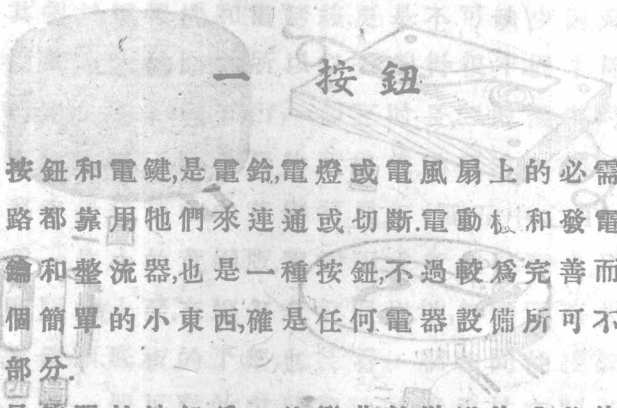 一 按鈕
按鈕和電鍵,是電鈴,電燈或電風扇上的必需
路都靠用牠們來連通或切斷.電動機和發電
和整流器,也是一種按鈕,不過較爲完善而
個簡單的小東西,確是任何電器設備所可不
部分.